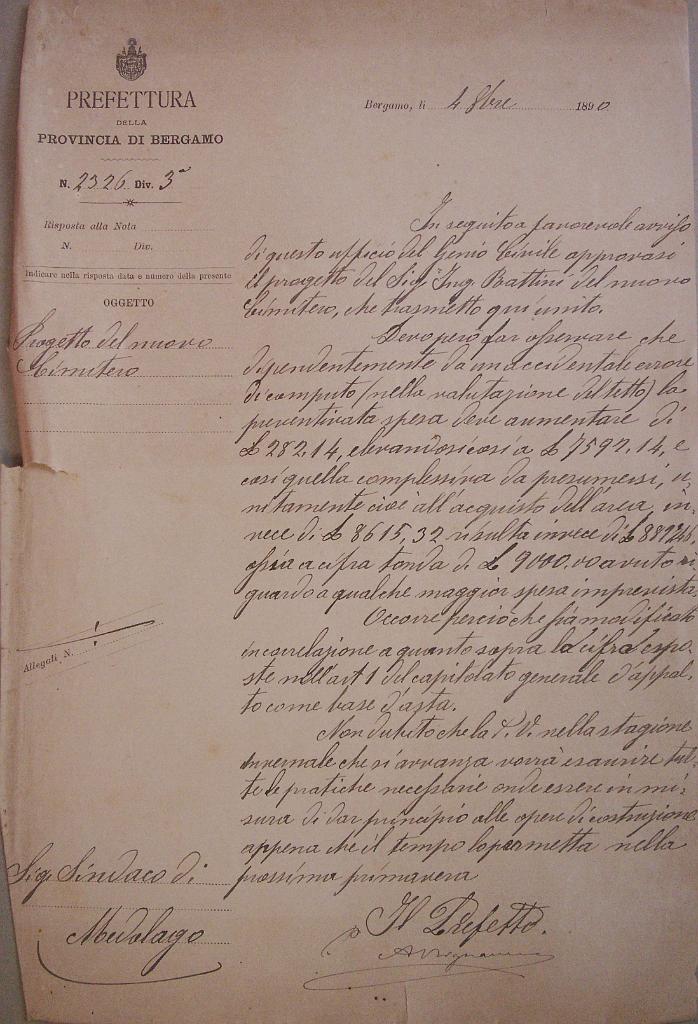 PREFETTURA
DELLA
PROVINCIA DI BERGAMO
N. 2326 Div. 3ª
Risposta alla Nota
N. Div.
Indicare nella risposta data e numero della presente
OGGETTO
Progetto del nuovo
Cimitero
Allegati N.
Sig. Sindaco di
Medolago
Bergamo, li 4 8bre 1890
In seguito a favorevole avviso
di questo ufficio del Genio Civile approvasi
il progetto del Sig. Ing. Battini del nuovo
Cimitero, che trasmetto qui unito.
Devo però far osservare che
dipendentemente da un accidentale errore
di computo (nella valutazione del tetto) la
preventivata spesa deve aumentare di
£ 282.14, elevandosi così a £ 7597.14, e
così quella complessiva da presumersi, u-
nitamente cioè all'acquisto dell'area, in-
vece di £ 8615,32 risulta invece di £
ossia a cifra tonda di £ 9000.00 avuto ri-
guardo a qualche maggior spesa imprevista.
Occorre perciò che sia modificato
in correlazione a quanto sopra la cifra espo-
ste nell'art 1 del capitolato generale d'appal-
to come base d'asta.
Non dubito che la S. V. nella stagione
invernale che si avvanza vorrà esaurire tut-
te le pratiche necessarie onde essere in mi-
sura di dar principio alle opere di costruzione
appena che il tempo lo permetta nella
prossima primavera
Il Prefetto.